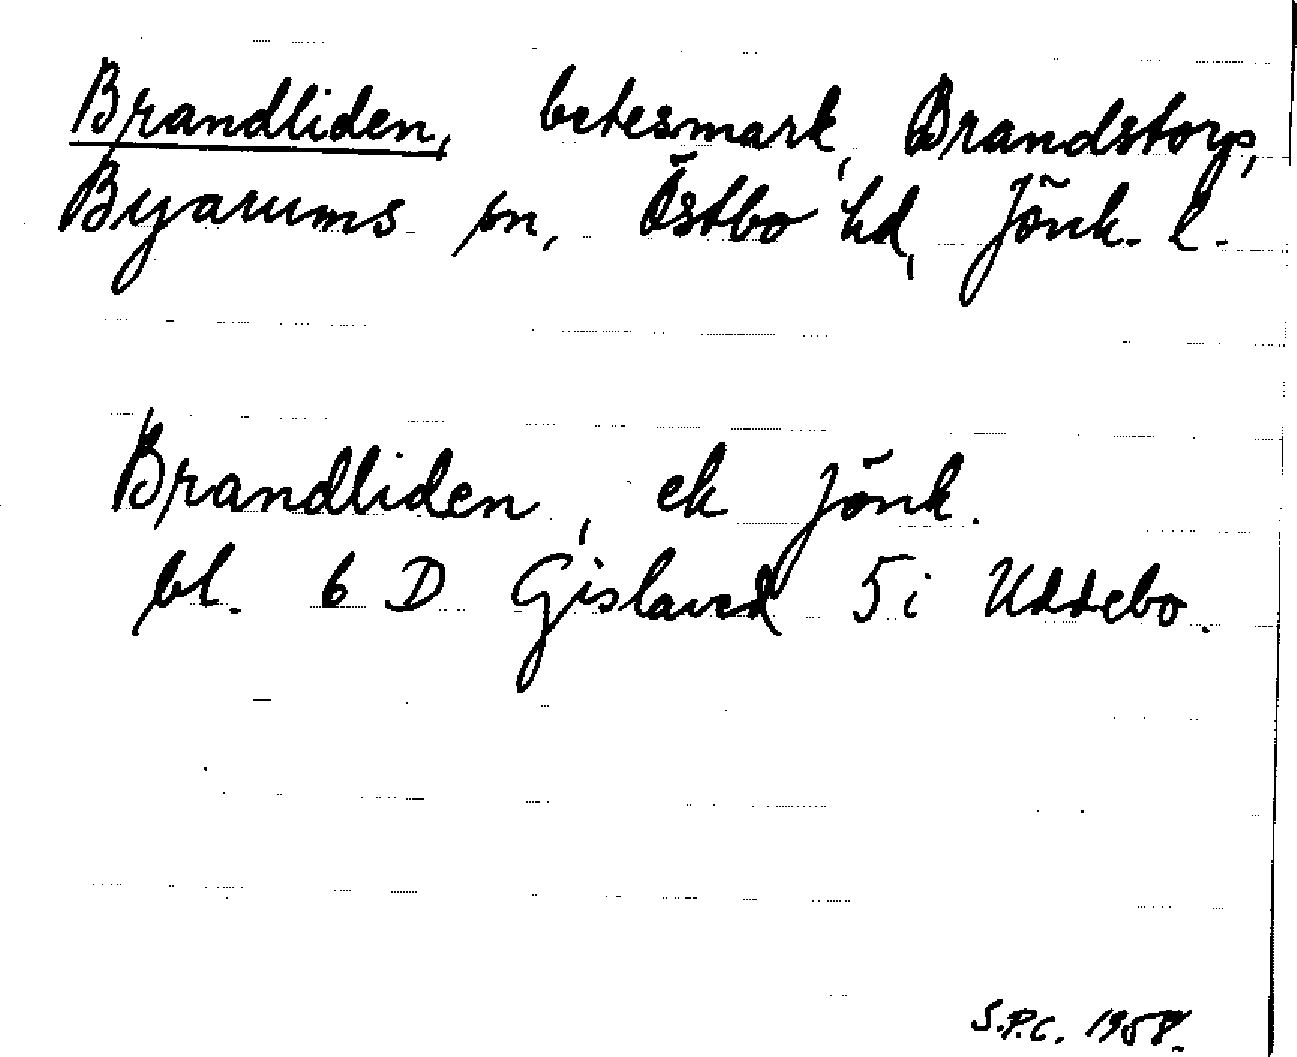 Brandliden, betesmark, Brandstorp,
Byarums sn, Östbo hd, Jönk. l.
Brandliden, ek Jönk.
bl. 6 D Gislaved 5 i Uddebo.
S.P.C. 1958.